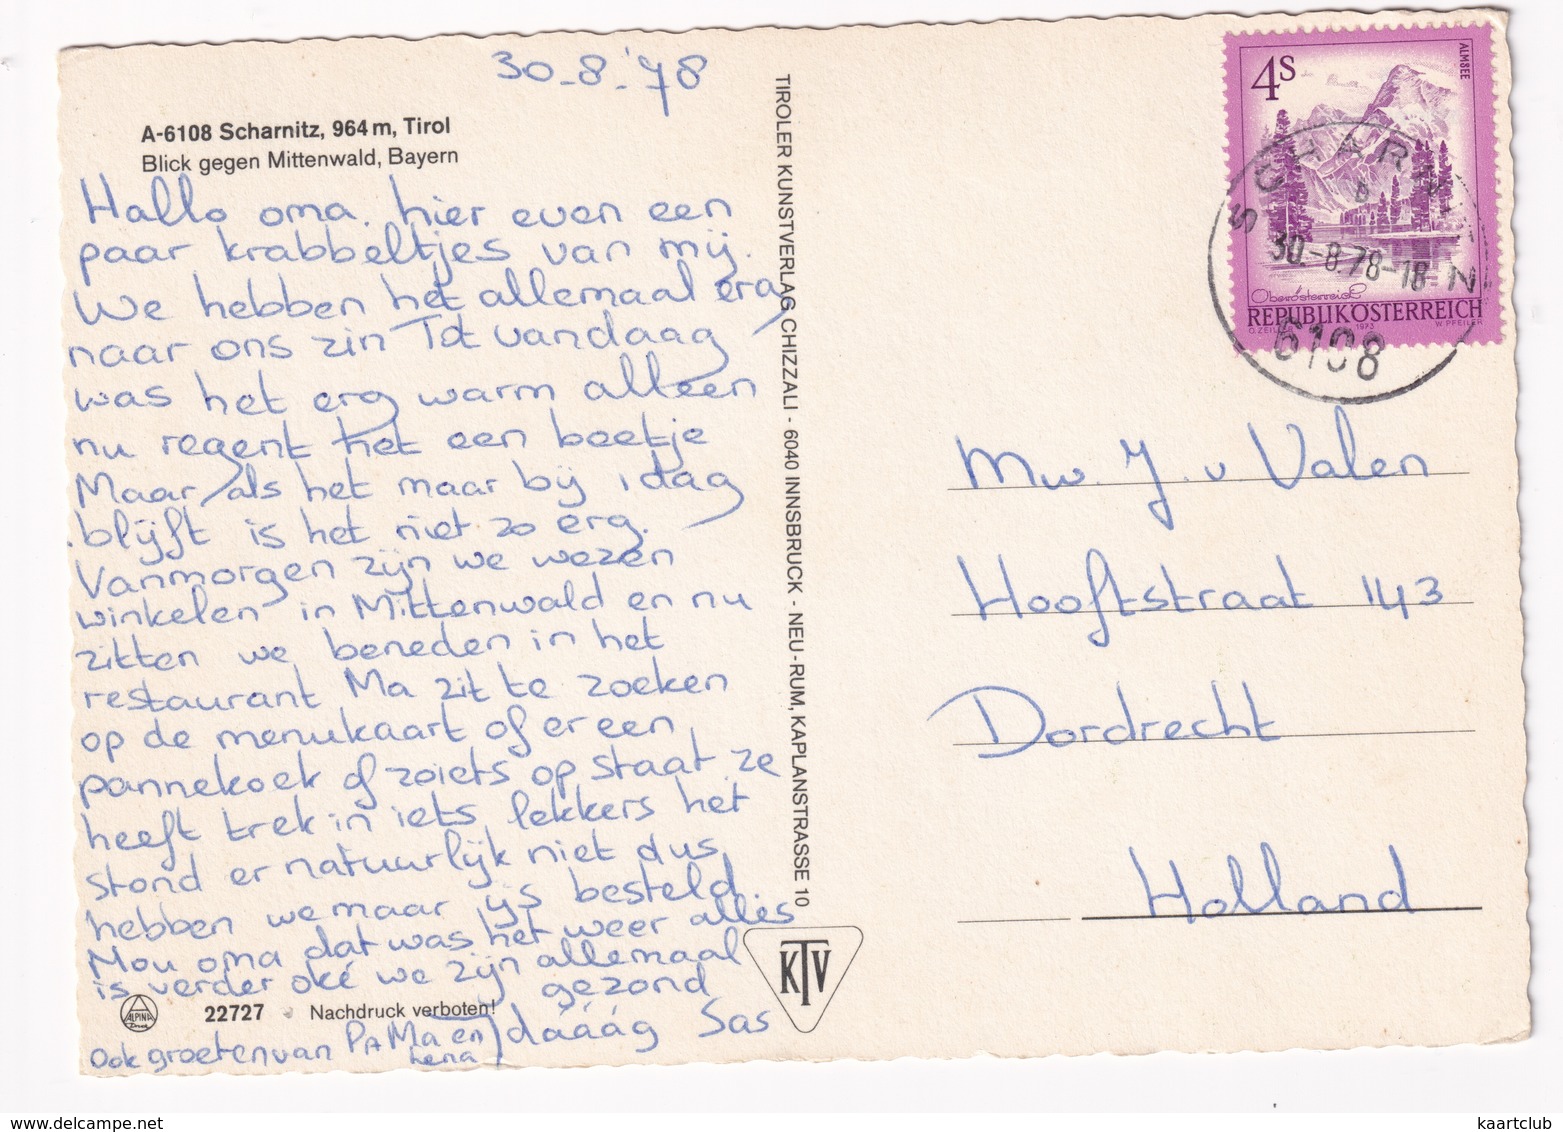 30-8-'78
A-6108 Scharnitz, 964 m, Tirol
Blick gegen Mittenwald, Bayern
Hallo oma. hier even een
paar krabbeltjes van mij.
We hebben het allemaal erg
naar ons zin Tot vandaag
was het erg warm alleen
nu regent het een beetje
Maar als het maar bij 1 dag
blijft is het niet zo erg.
Vanmorgen zijn we wezen
winkelen in Mittenwald en nu
zitten we beneden in het
restaurant Ma zit te zoeken
op de menukaart of er een
pannekoek of zoiets op staat ze
heeft trek in iets lekkers het
stond er natuurlijk niet dus
hebben we maar ijs besteld.
Mou oma dat was het weer alles
is verder oké we zijn allemaal
gezond
dááág Sas
Ook groeten van PA Ma en
Lena
22727 Nachdruck verboten!
ALPINA
Druck
TIROLER KUNSTVERLAG CHIZZALI - 6040 INNSBRUCK - NEU-RUM, KAPLANSTRASSE 10
KTV
4S
ALMSEE
Oberösterreich
REPUBLIK ÖSTERREICH
1973
W. PFEILER
SCHARNITZ
b
30.-8.78-18
6108
Mw. J. v Valen
Hooftstraat 143
Dordrecht
Holland
kaartclub